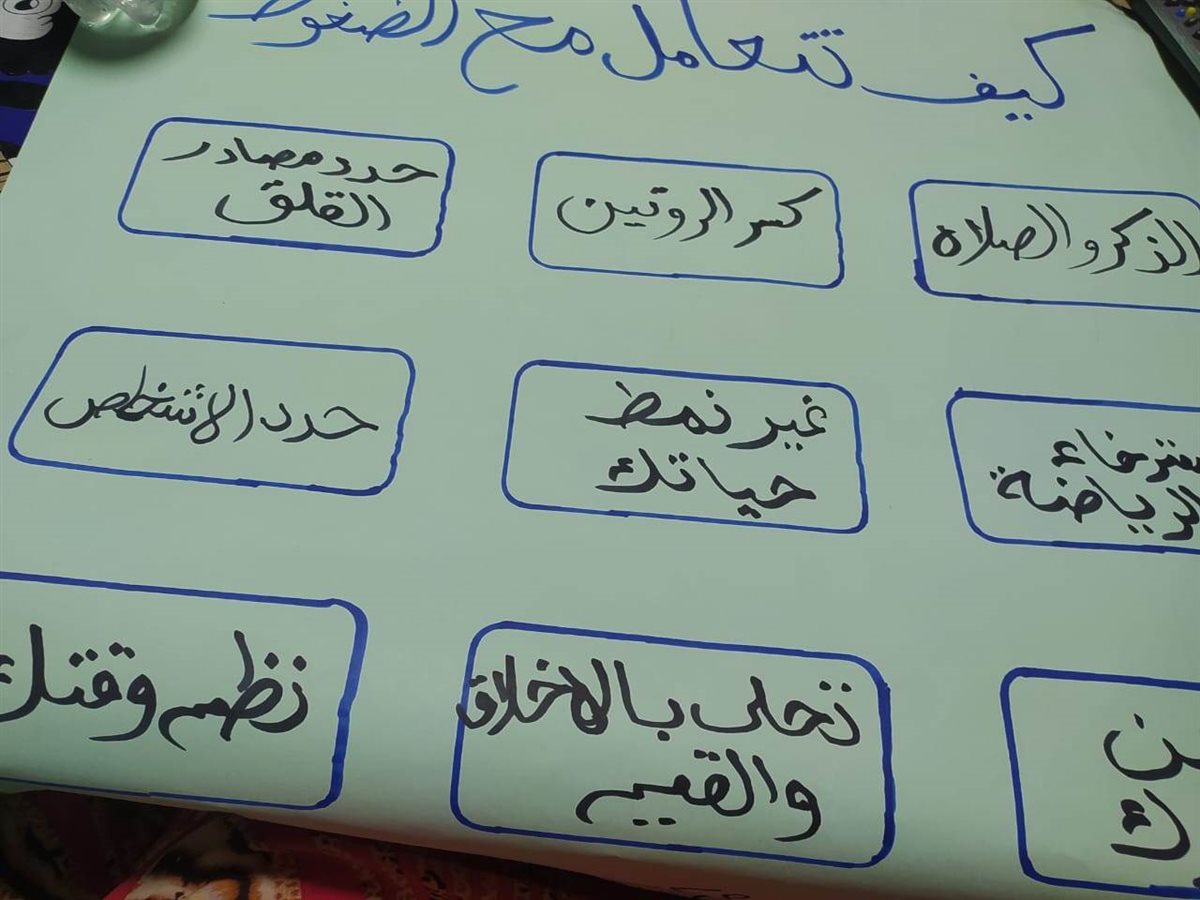 كيف تتعامل مع الضغوط
الذكر والصلاه
كسر الروتين
حدد مصادر
القلق
الرياضة
غير نمط
حياتك
حدد الاشخاص
تحلى بالاخلاق
والقيم
نظم وقتك